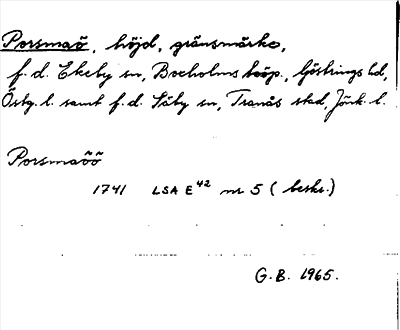 Porsmaõ, höjd, gränsmärke,
f.d. Ekeby sn, Boxholms köp., Göstrings hd,
Östg. l. samt f.d. Säby sn, Tranås stad, Jönk. l.
Porsmaõõ
1741 LSA E42 nr 5 (beskr.)
G.B. 1965.